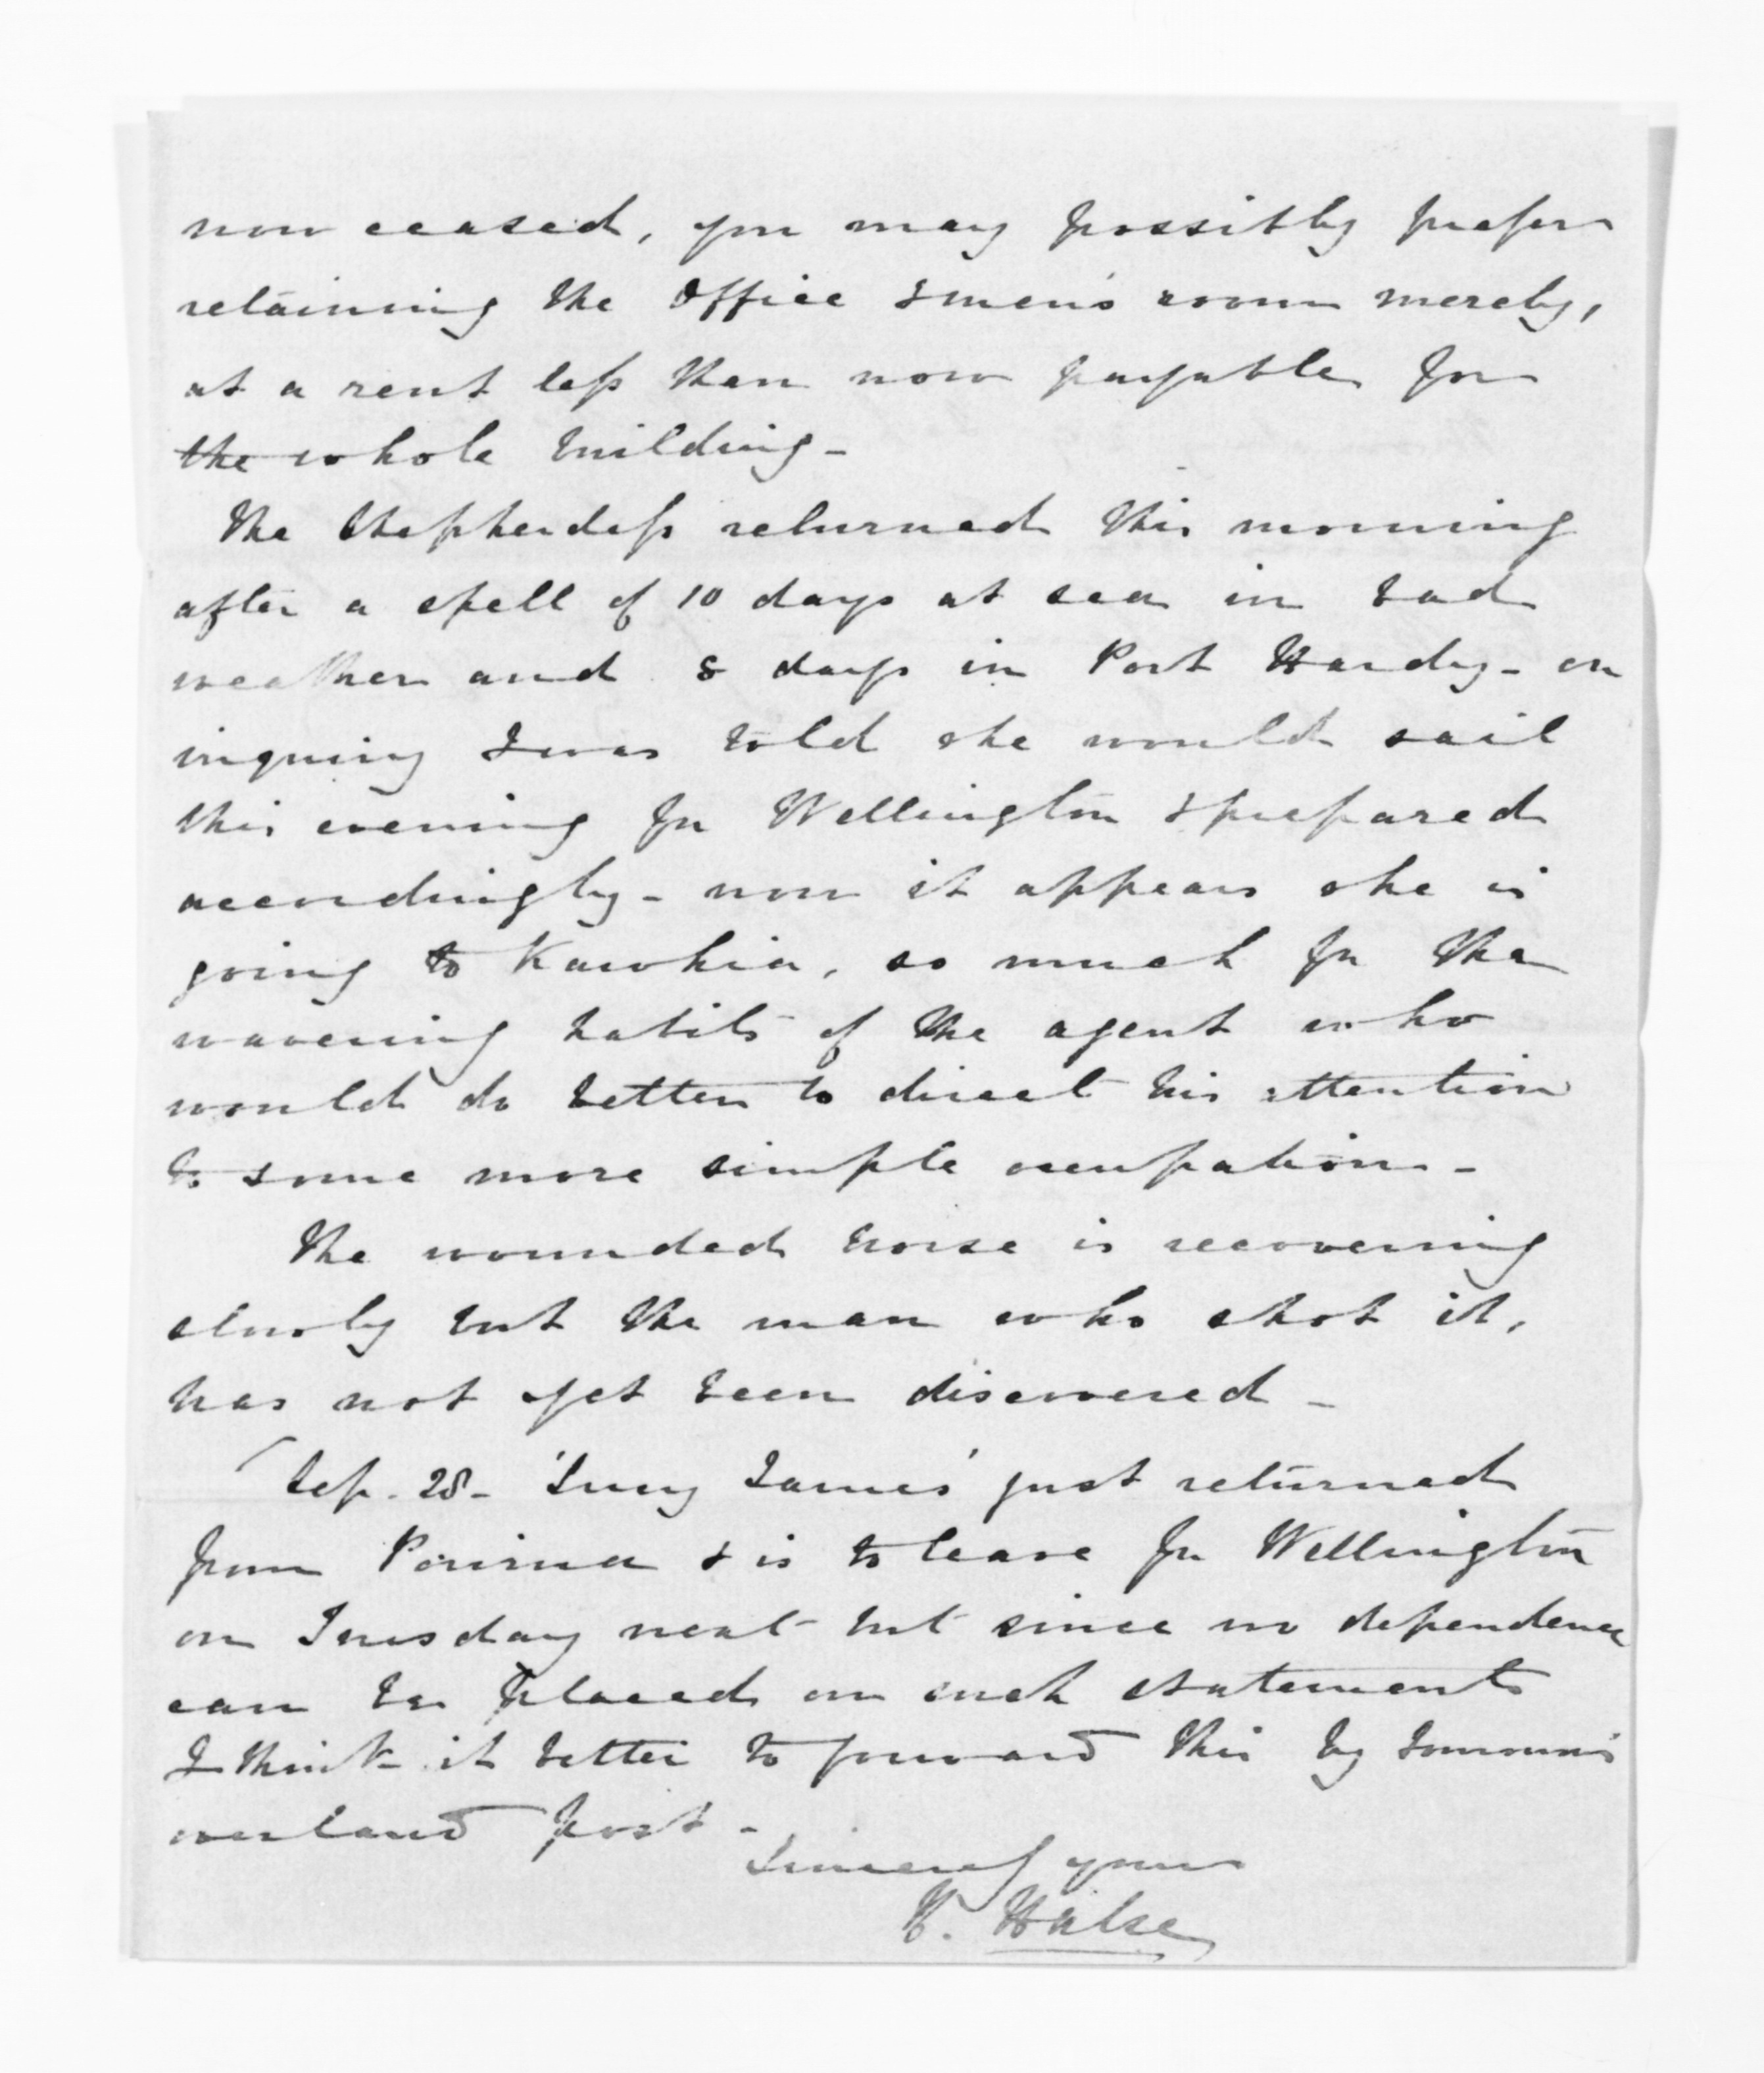 now ceased, you may possibly prefer
retaining the Office & men's room merely,
at a rent less than now payable for
the whole building -
The Shepherdess returned this morning
after a spell of 10 days at sea in bad
weather and 8 days in Port Hardy - on
inquiry I was told she would sail
this evening for Wellington & prepared
accordingly - now it appears she is
going to Kawhia, so much for the
wavering habits of the agent who
would do better to direct his attention
to some more simple occupation -
The wounded horse is recovering
slowly but the man who shot it,
has not yet been discovered -
Sep. 28 - 'Lucy James' just returned
from Porirua & is to leave for Wellington
on Tuesday next but since no dependence
can be placed on such statements
I think it better to forward this by tomorrow's
overland post -
Sincerely yours
W. Halse